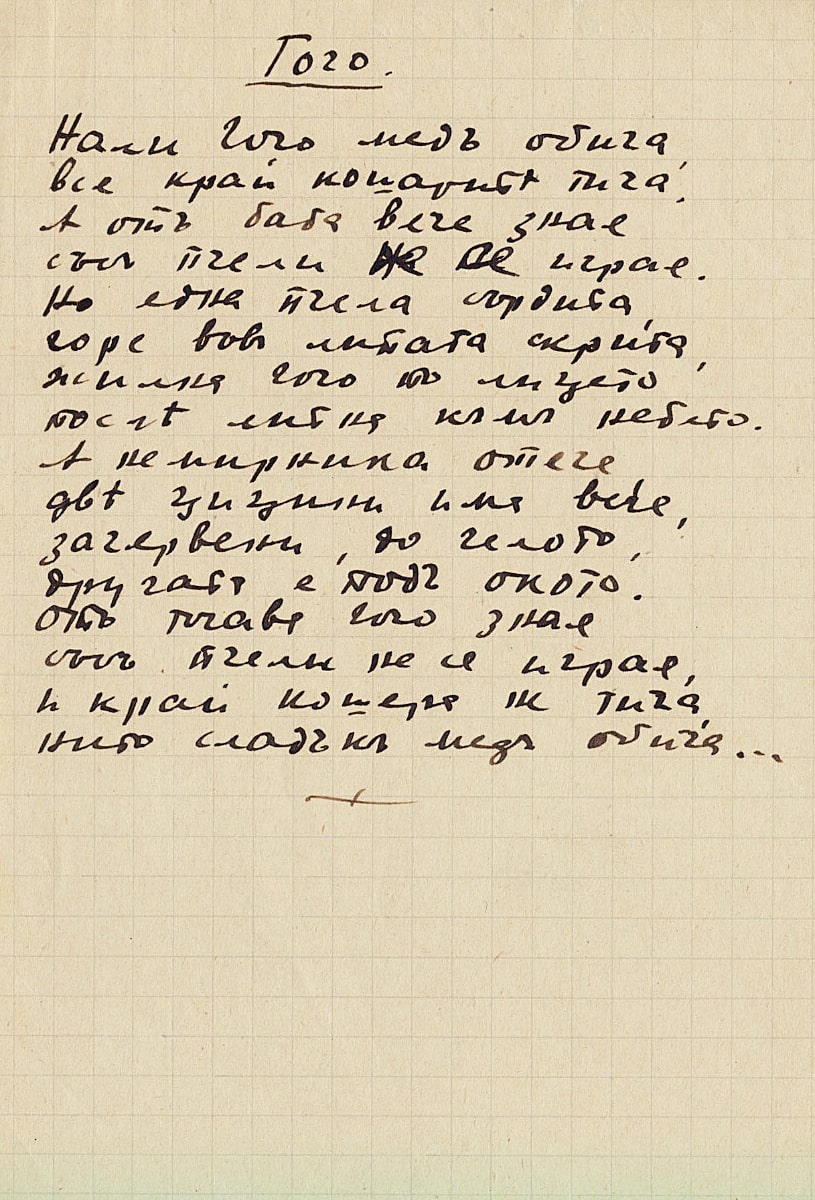 Гого.
Нали Гого медъ обича,
все край кошаритѣ тича,
А отъ баба вече знае
съсъ пчели не се играе.
Но една пчела сърдита,
горе въвъ липата скрита,
жилна Гого по лицето
послѣ литна къмъ небето.
А немирника отече
двѣ цицини има вече,
зачервени, до челото,
другата е подъ окото.
Отъ тогава Гого знае
съсъ пчели не се играе,
и край кошера не тича,
нито сладъкъ медъ обича...